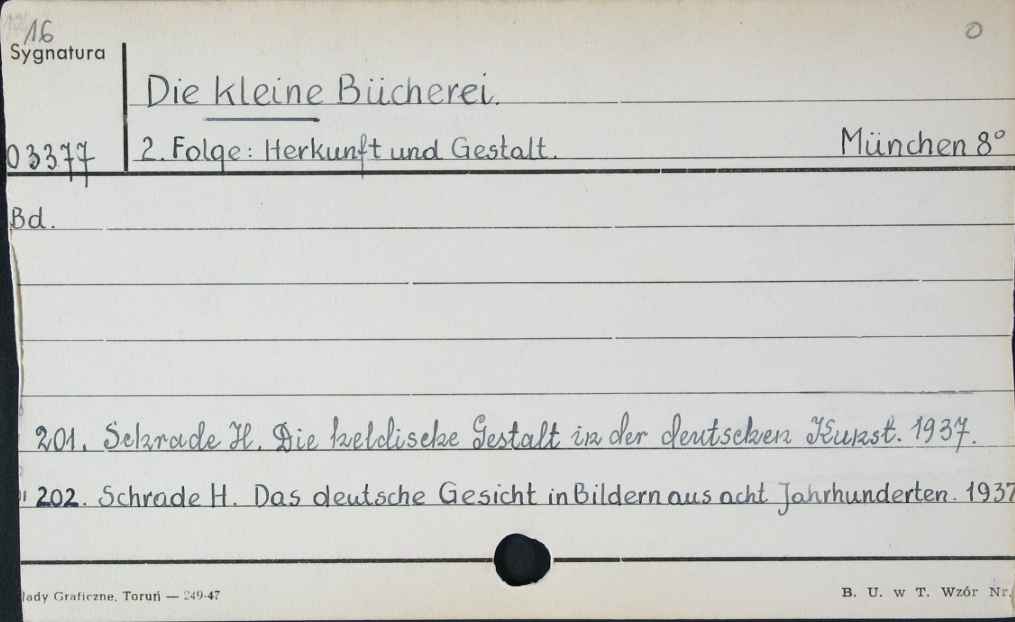 16
Sygnatura
Die kleine Bücherei.
03377
2. Folge: Herkunft und Gestalt. München 8°
Bd.
201. Schrade H. Die heldische Gestalt in der deutschen Kunst. 1937.
202. Schrade H. Das deutsche Gesicht in Bildern aus acht Jahrhunderten. 1937
łady Graficzne, Toruń — 249-47 B. U. w T. Wzór Nr.